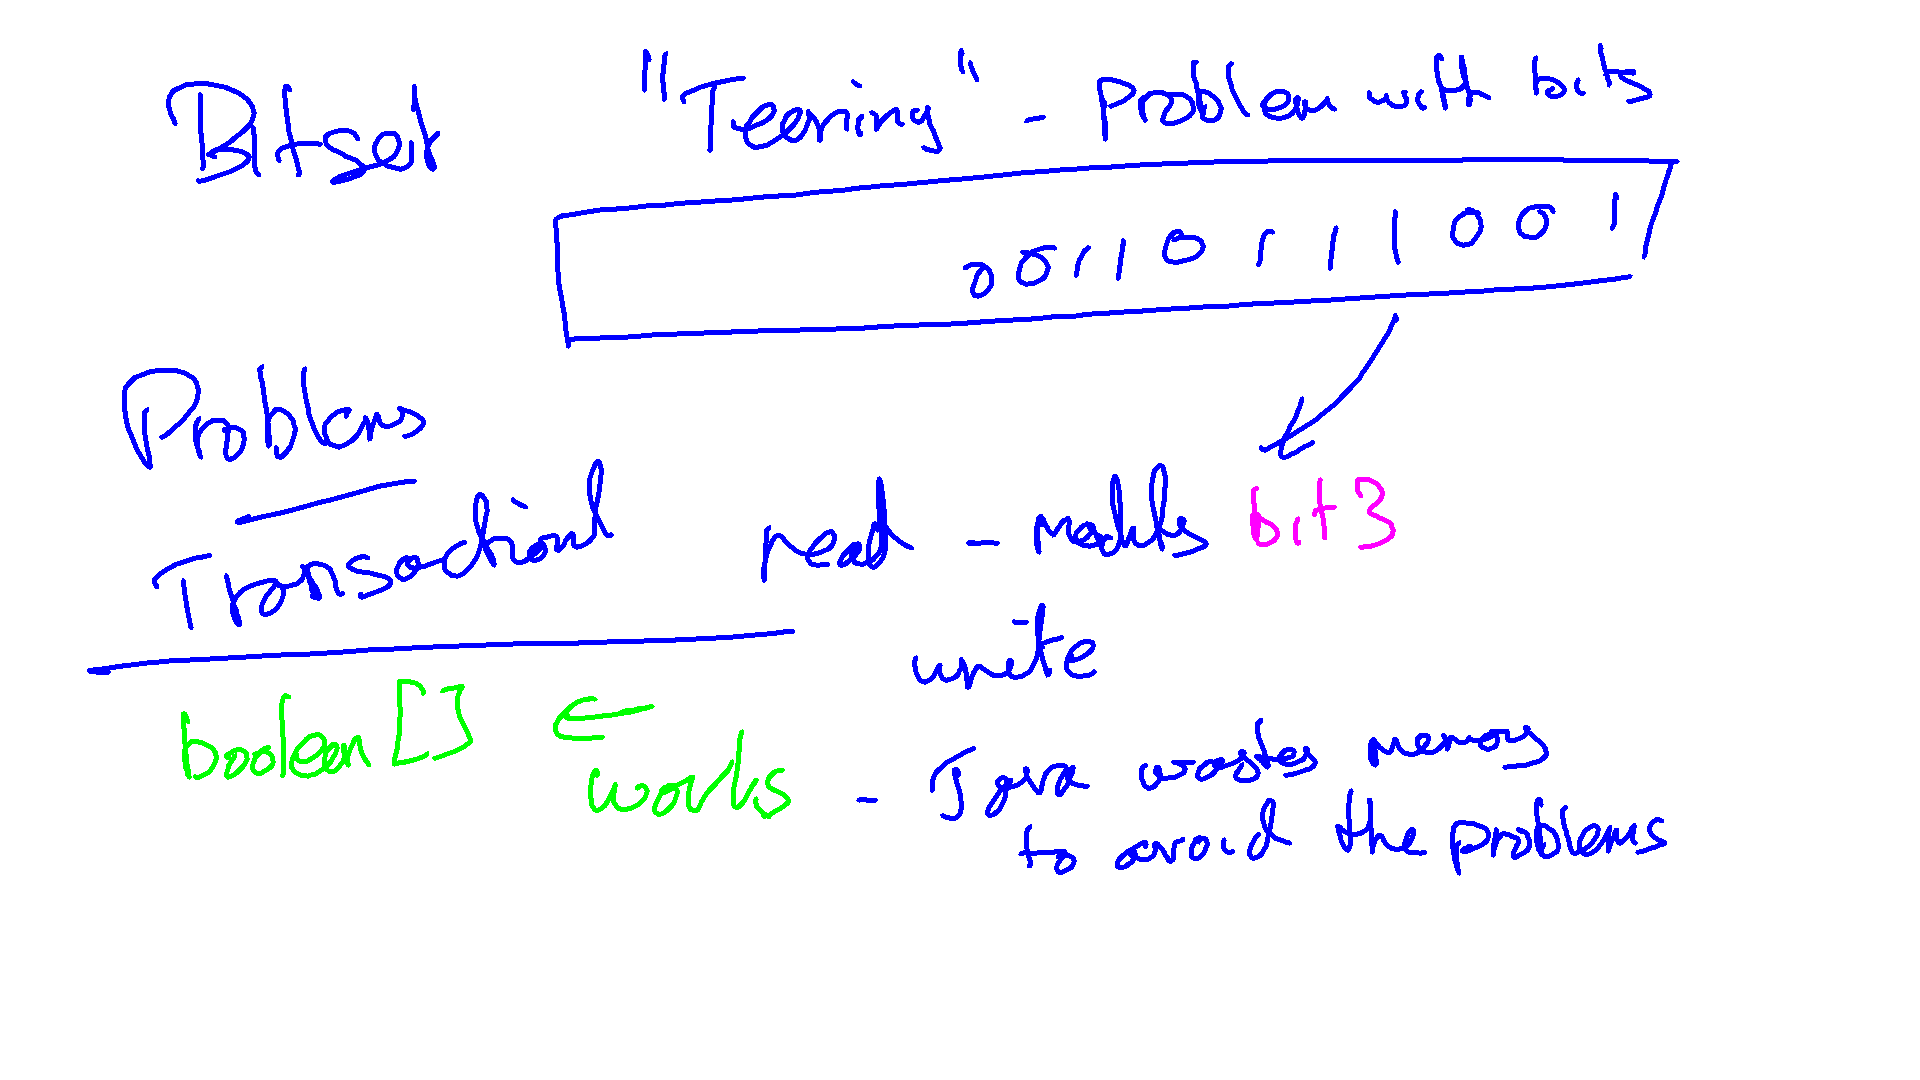 Bitset "Teering" - Problem with bits
0 0 1 1 0 1 1 1 0 0 1
Problems
Transactional read - modify bit 3
write
boolean [] ← works - Java wastes memory
to avoid the problems